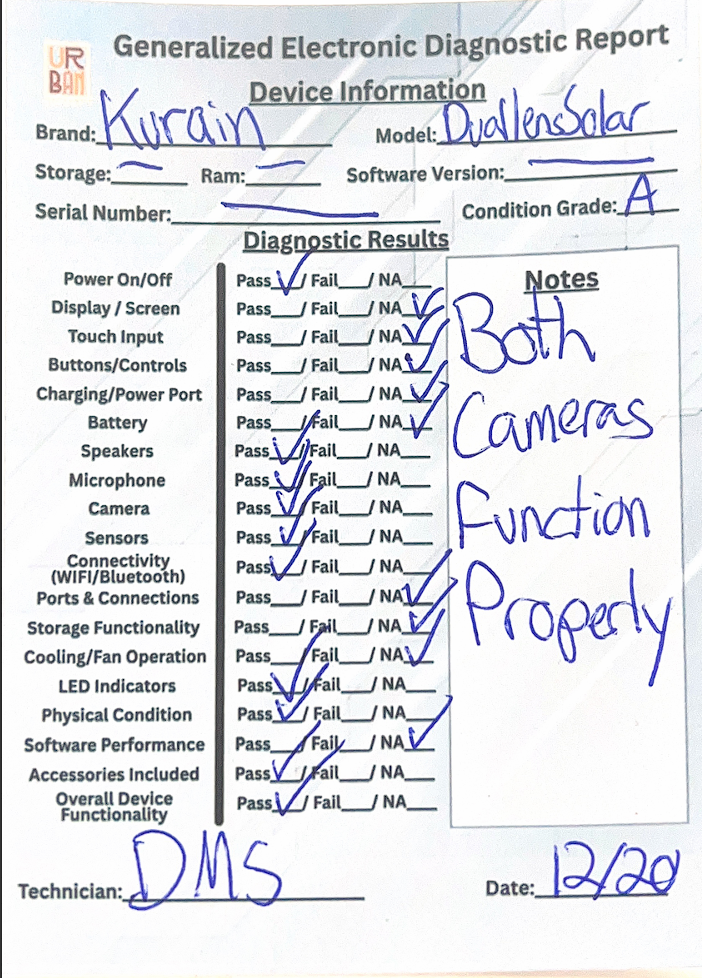 UR
BAN
Generalized Electronic Diagnostic Report
Device Information
Brand: Kurain Model: DuallensSolar
Storage: — Ram: — Software Version: —
Serial Number: — Condition Grade: A
Diagnostic Results
Notes
Power On/Off Pass ✓ / Fail___/ NA___
Display / Screen Pass___/ Fail___/ NA ✓
Touch Input Pass___/ Fail___/ NA ✓
Buttons/Controls Pass___/ Fail___/ NA ✓
Charging/Power Port Pass___/ Fail___/ NA ✓
Battery Pass___/ Fail___/ NA ✓
Speakers Pass ✓ / Fail___/ NA___
Microphone Pass ✓ / Fail___/ NA___
Camera Pass ✓ / Fail___/ NA___
Sensors Pass ✓ / Fail___/ NA___
Connectivity
(WIFI/Bluetooth) Pass ✓ / Fail___/ NA___
Ports & Connections Pass___/ Fail___/ NA ✓
Storage Functionality Pass___/ Fail___/ NA ✓
Cooling/Fan Operation Pass___/ Fail___/ NA ✓
LED Indicators Pass ✓ / Fail___/ NA___
Physical Condition Pass ✓ / Fail___/ NA___
Software Performance Pass___/ Fail___/ NA ✓
Accessories Included Pass ✓ / Fail___/ NA___
Overall Device
Functionality Pass ✓ / Fail___/ NA___
Both
Cameras
Function
Properly
Technician: DMS Date: 12/20